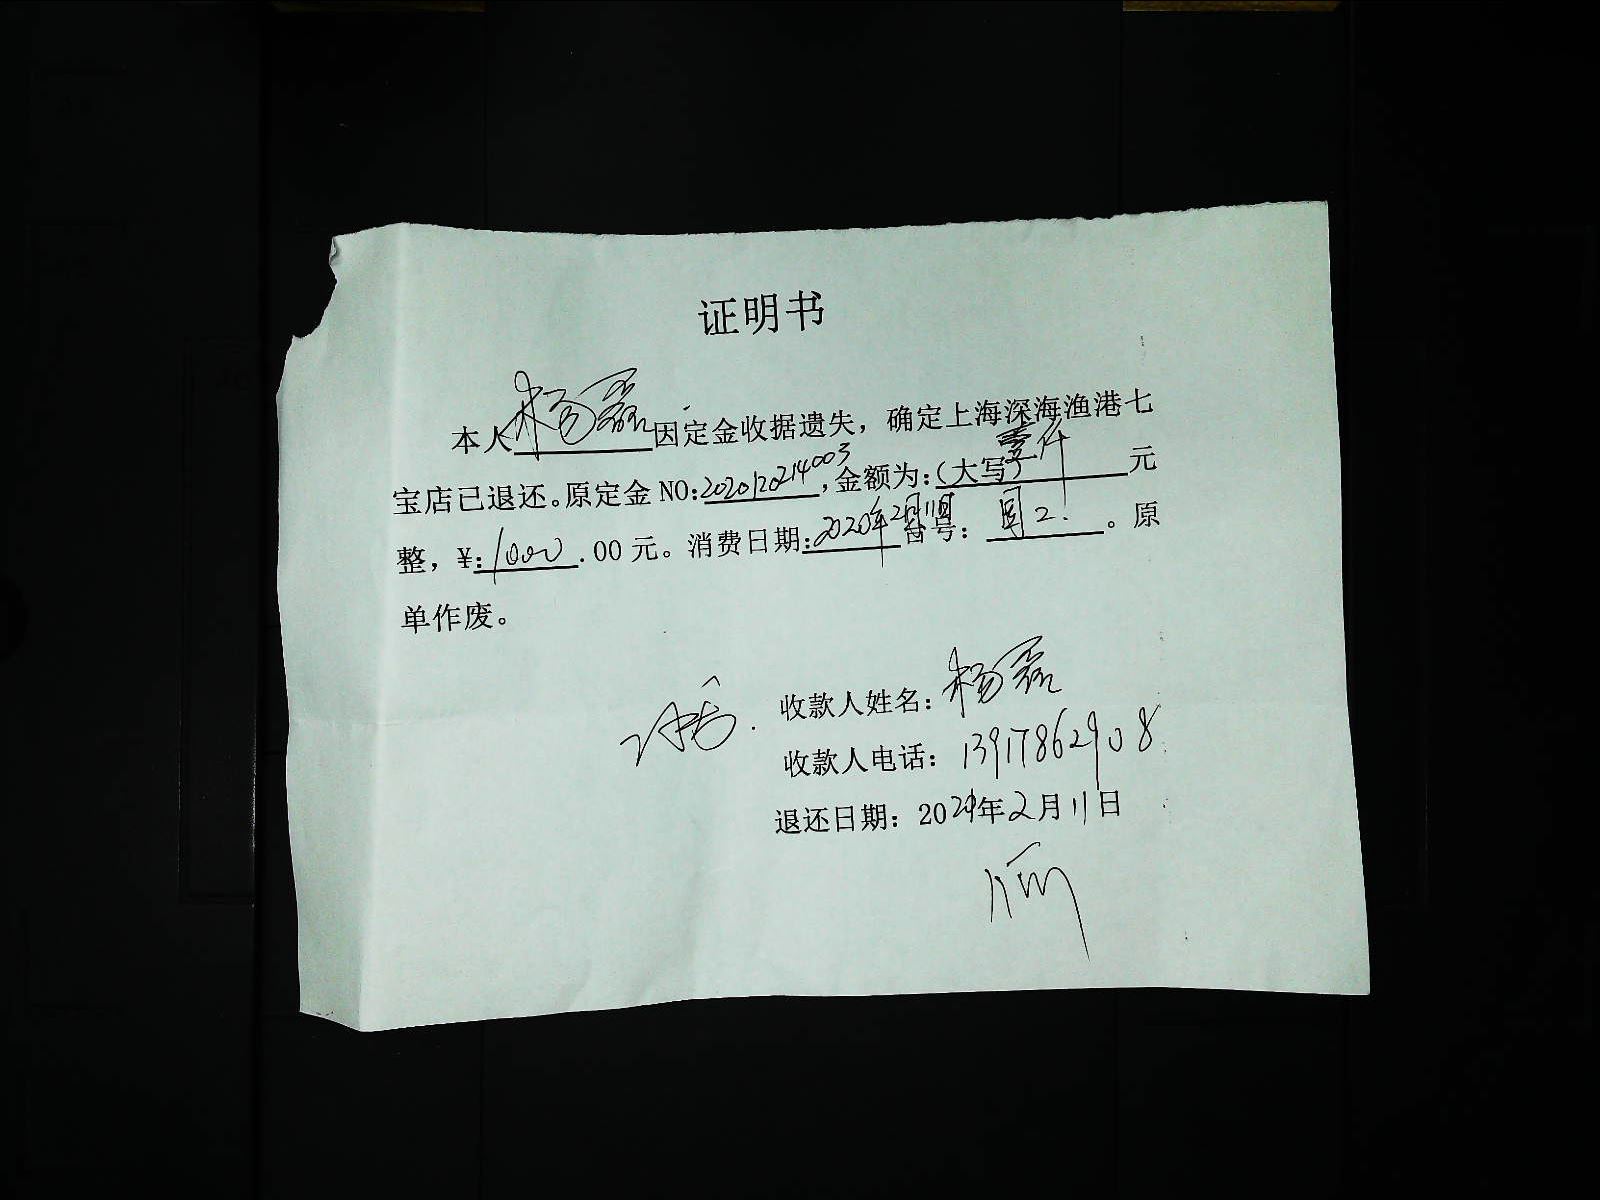 证明书
本人杨磊因定金收据遗失，确定上海深海渔港七
宝店已退还。原定金 NO:2020120214003,金额为:(大写)壹仟元
整，¥:1000.00 元。消费日期:2020年2月11日台号：2.。原
单作废。
收款人姓名：杨磊
收款人电话：13917862908
退还日期：202年2月11日